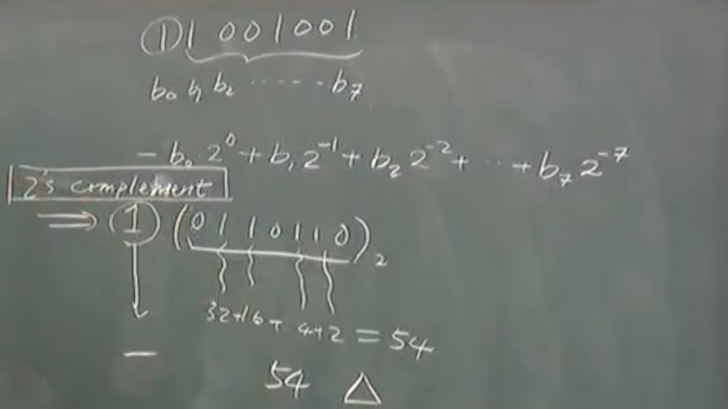 ① 1 001001
b₀ b₁ b₂ ······ b₇
- b₀ 2⁰ + b₁ 2⁻¹ + b₂ 2⁻² + ··· + b₇ 2⁻⁷
2's complement
⇒ (1) (0110110)₂
32+16+ 4+2 = 54
-
54 △